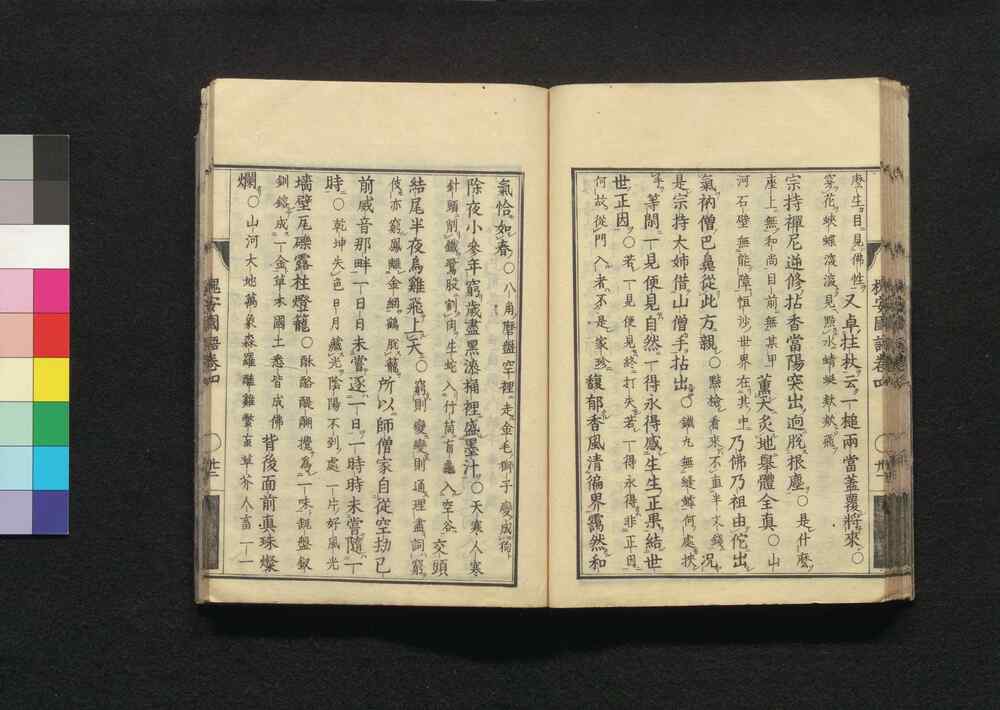 麽生目見佛性又卓拄杖云一槌兩當蓋覆將來○
穿花蛺蝶深深見點水蜻蜓款款飛
宗持禪尼逆修拈香當陽突出逈脫根塵○是什麽
座上無和尚目前無某甲薰天炙地舉體全真○山
河石壁無能障恒沙世界在其中乃佛乃祖由佗出
氣衲僧巴鼻從此方親○點檢看來不直半文錢況
是宗持大姉借山僧手拈出○鐵丸無縫罅何處挾
等閑一見便見自然一得永得感生生正果結世
世正因○若一見便見終打失若一得永得非正因
何故從門入者不是家珍馥郁香風清徧界靄然和
槐安國語卷四
氣恰如春○八角磨盤空裡走金毛獅子變成狗
除夜小參年窮歲盡黑漆桶裡盛墨汁○天寒人寒
針頭削鐵鷺股割肉生蛇入竹筒盲龜入空谷交頭
結尾半夜烏雞飛上天○窮則變變則通理盡詞窮
伎亦窮鳳離金網鶴脫籠所以師僧家自從空劫已
前威音那畔一日日未嘗逐一日一時時未嘗隨一
時○乾坤失色日月藏光陰陽不到處一片好風光
墻壁瓦礫露柱燈籠○酥酪醍醐攪爲一味瓶盤釵
釧鎔成一金草木國土悉皆成佛背後面前真珠燦
爛○山河大地萬象森羅離離蓊草芥人畜一一
槐安國語卷四